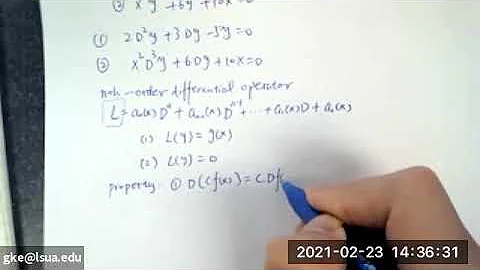 ② x³y''' + 6y' + 10x = 0
① 2D²y + 3Dy - 5y = 0
② x²D³y + 6Dy + 10x = 0
nth-order differential operator
L = aₙ(x)Dⁿ + aₙ₋₁(x)Dⁿ⁻¹ + ... + a₁(x)D + a₀(x)
(1) L(y) = g(x)
(2) L(y) = 0
property: ① D(cf(x)) = c Df(
gke@lsua.edu
2021-02-23 14:36:31